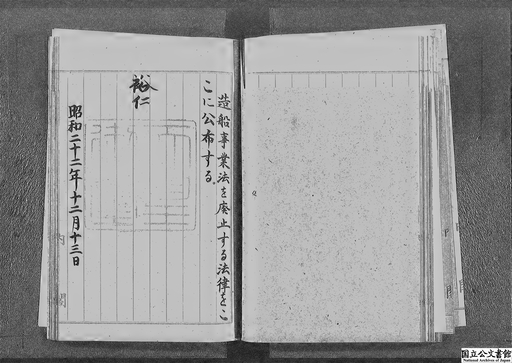 造船事業法を廃止する法律をこ
こに公布する。
裕仁
昭和二十二年十二月十三日
内閣
国立公文書館
National Archives of Japan